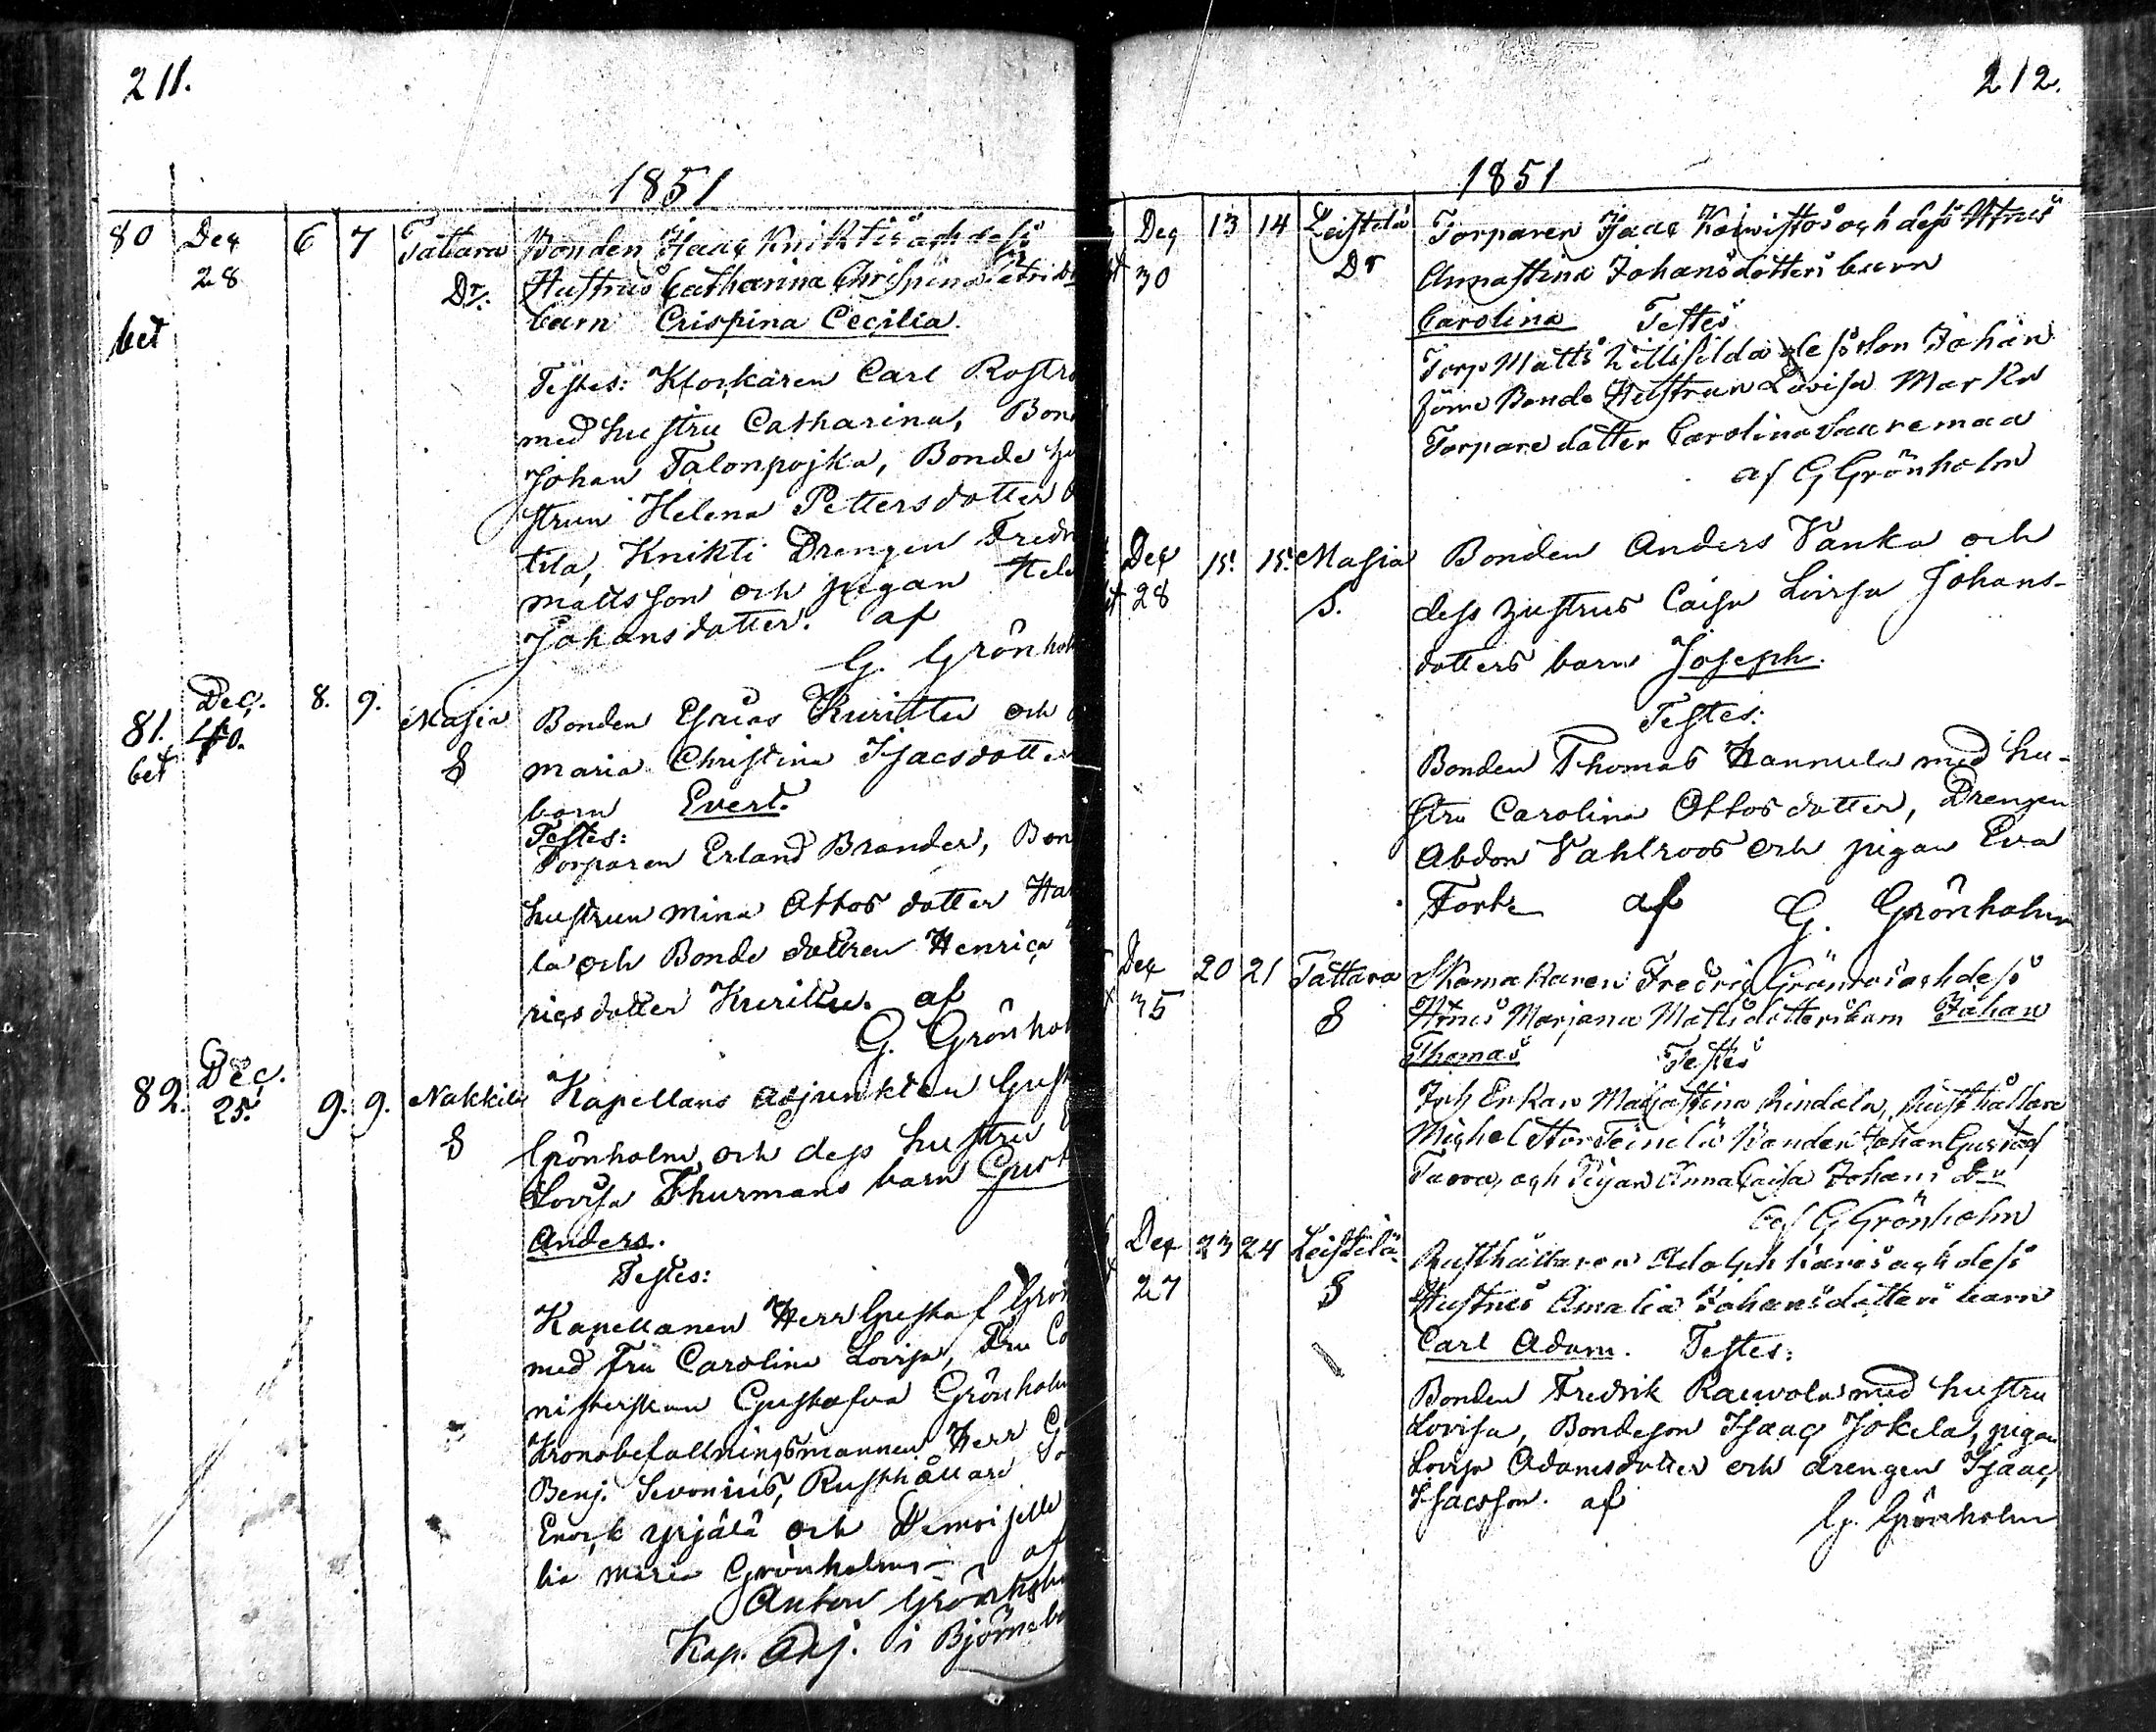 211.
1851
80 Dec 6 7 Tattara Bonden Isaac Kniktis och dess
28 Dr. Hustrus Catharina Chrispina Petridr
bet barn Crispina Cecilia.
Testes: Klockaren Carl Rostr
med hustru Catharina, Bon
Johan Talonpojka, Bonde hu
strun Helena Pettersdotter
tila, Knikti Drengen Fredr
Mattsson och pigan Hele
Johansdotter. af
G. Grönhol
81. Dec. 8. 9. Masia Bonden Esaias Kurittu och
bet 40. S Maria Christina Isacsdotter
barn Evert.
Testes:
Torparen Erland Brander, Bon
hustrun Mina Ottos dotter Ha
la och Bonde dottren Henrica
ricsdotter Kurittu. af
G. Grönhol
82. Dec. 9. 9. Nakkila Kapellans adjunkten Gust
25. S Grönholm och dess hustru
Lovisa Thurmans barn Gust
Anders.
Testes:
Kapellanen Herr Gustaf Grön
med fru Carolina Lovisa, Fru Co
nisterskan Gustafva Grönholm
Kronobefallningsmannen Herr G
Benj. Sevonius, Rusthållare So
Enock Yrjälä och Demoiselle
lia Maria Grönholm – af
Anton Grönholm
Kap. Adj. i Björnebo
212.
1851
Dec 13 14 Leistilä Torparen Isaac Koivistos och dess Htrus
30 Dr Annastina Johansdotters barn
Carolina Testes
Torp Matts Lillisilda dess Son Johan
Bonde Hustrun Lovisa Markn
Torpare dotter Carolina Saaremaa
af G Grönholm
Dec 15. 15. Masia Bonden Anders Vanka och
28 S. dess hustrus Caisa Lovisa Johans-
dotters barn Joseph.
Testes:
Bonden Thomas Hannula med hu-
stru Carolina Ottosdotter, Drengen
Abdon Vahlroos och pigan Eva
Torke af G. Grönholm
Dec 20 21 Tattara Skomakaren Fredric Grönroos och dess
35 S Htrus Marjana Mattsdotters barn Johan
Thomas Testes
Enkan Majastina Rindala, Rusthållare
Michel Stor Teinilä Bonden Johan Gustaf
och Pigan Anna Caisa Johans dr
af G Grönholm
Dec 23 24 Leistilä Rusthållaren Adolph Karis och dess
27 S Hustrus Amalia Johansdotters barn
Carl Adam. Testes:
Bonden Fredrik Raiwola med hustru
Lovisa, Bondeson Isaac Jokela, pigan
Lovisa Adamsdotter och drengen Isaac
Isacsson. af
G. Grönholm